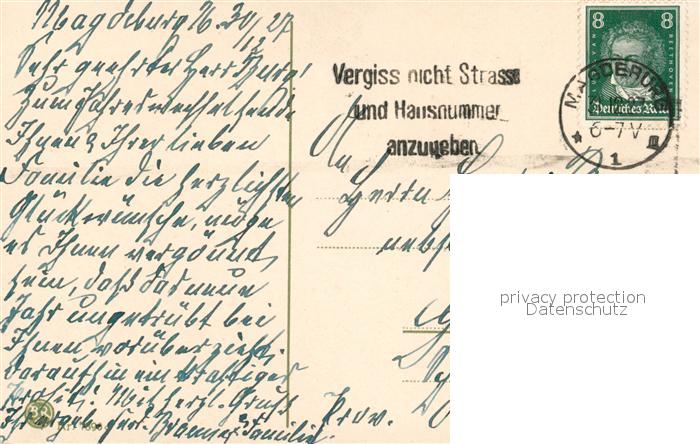 Magdeburg 30/12 27
Sehr geehrter Herr
Zum Jahreswechsel sende
Ihnen & Ihrer lieben
Familie die herzlichsten
Glückwünsche, möge
es Ihnen vergönnt
sein, daß das neue
Jahr ungetrübt bei
Ihnen vorüberzieht.
Daraufhin ein kräftiges
Prosit! Mit herzl. Gruß
Ihr ergeb. Familie
Vergiss nicht Strasse
und Hausnummer
anzugeben
8 8
VAN BEETHOVEN
Deutsches Reich
MAGDEBURG
6-7 V
* 1
An
Herrn
nebst
Prov.
privacy protection
Datenschutz